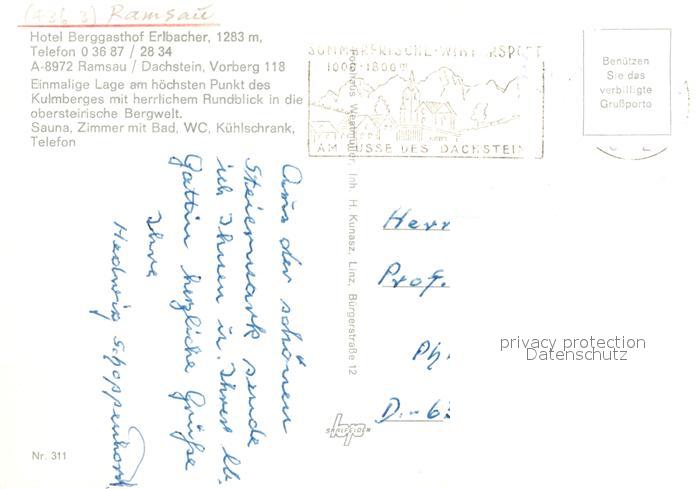 (436 3) Ramsau
Hotel Berggasthof Erlbacher, 1283 m,
Telefon 0 36 87 / 28 34
A-8972 Ramsau / Dachstein, Vorberg 118
Einmalige Lage am höchsten Punkt des
Kulmberges mit herrlichem Rundblick in die
obersteirische Bergwelt.
Sauna, Zimmer mit Bad, WC, Kühlschrank,
Telefon
SOMMERFRISCHE-WINTERSPORT
1000-1800m
AM FUSSE DES DACHSTEIN
Benützen
Sie das
verbilligte
Grußporto
Inh. H. Kunasz, Linz, Bürgerstraße 12
Aus der schönen
Steiermark sende
ich Ihnen u. Ihrer lb.
Gattin herzliche Grüße
Ihre
Hedwig Schoppenhorst
Herr
Prof.
Ph.
D-6
privacy protection
Datenschutz
SAALFELDEN
Nr. 311